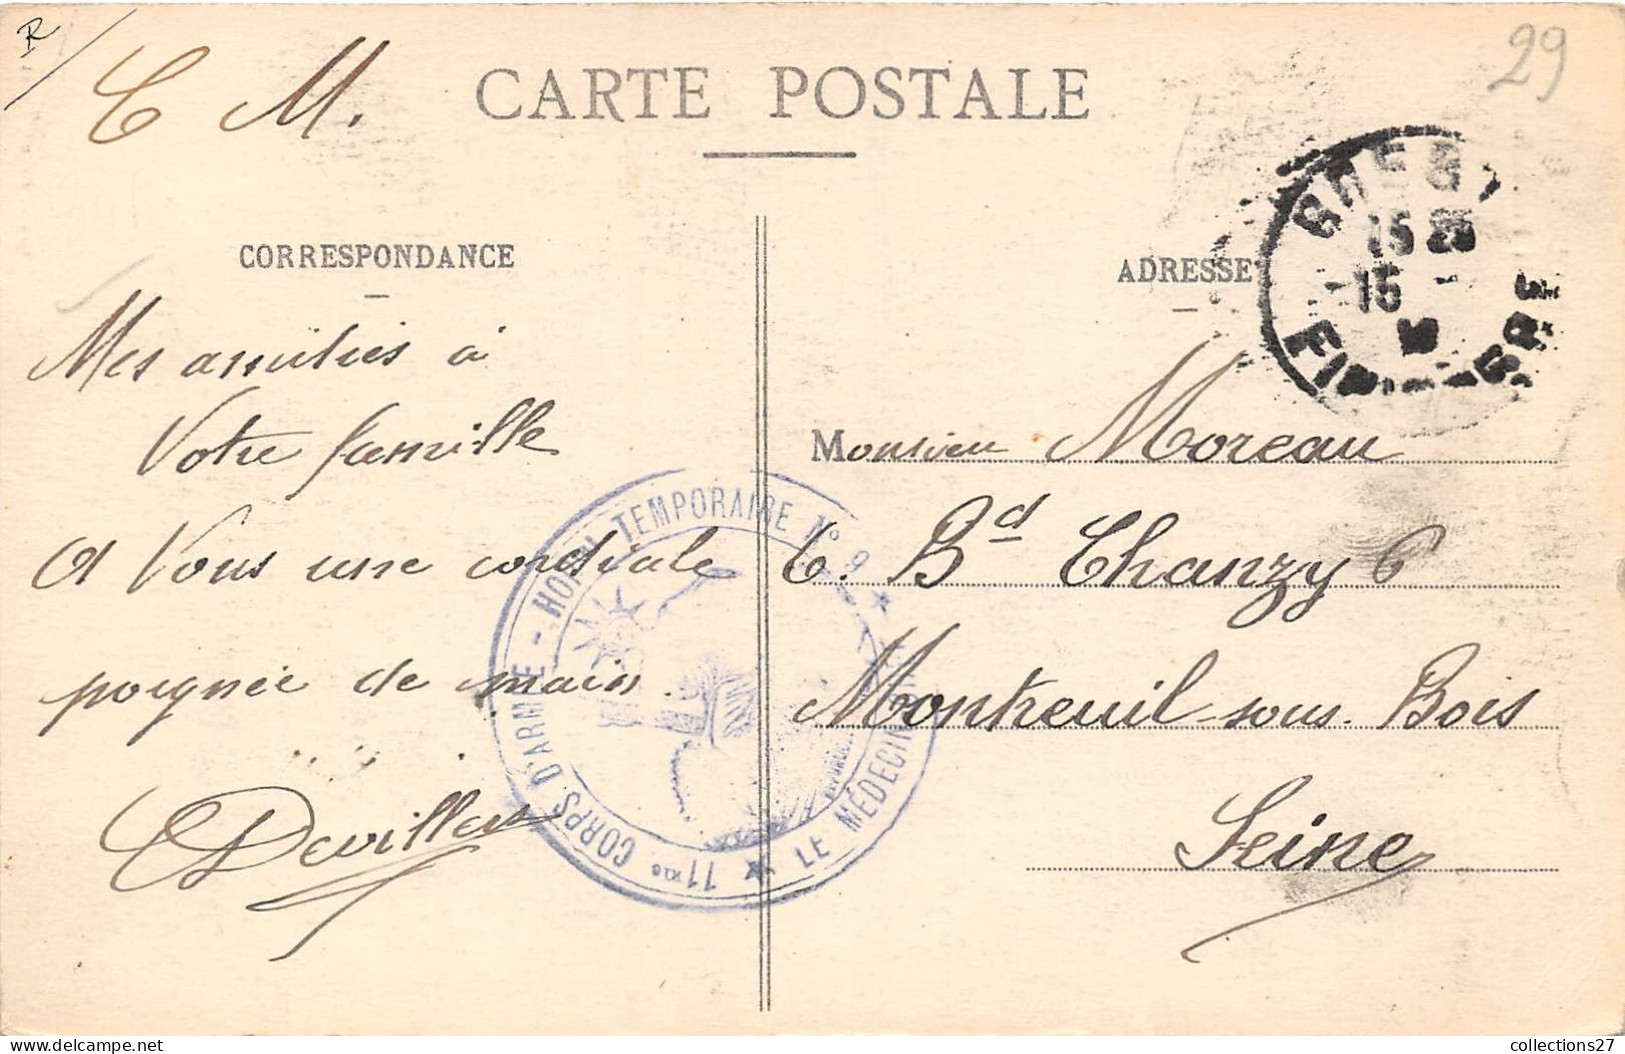 R
C M.
CARTE POSTALE
29
CORRESPONDANCE
ADRESSE
BREST
15 25
15
FINISTERE
Mes amitiés à
Votre famille
et Vous une cordiale
poignée de main.
Devillers
11me CORPS D'ARMÉE - HOPAL TEMPORAIRE N° 9 ★ LE MÉDECIN ★
Monsieur Moreau
6. Bd Chanzy 6
Montreuil-sous-Bois
Seine
delcampe.net
collections27